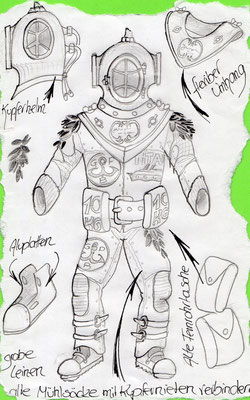 Kupferhelm
flexibler
Umhang
Aluplatten
Alte Fernrohrtasche
grobe
Leinen
alte Mühlsäcke mit Kupfernieten verbinden